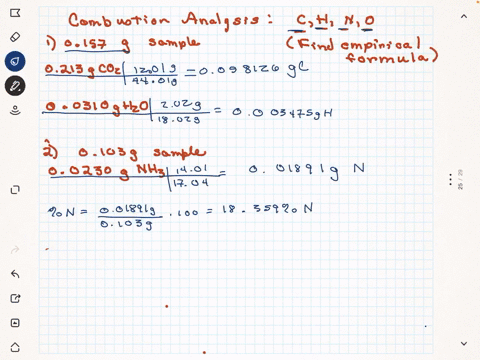 Combustion Analysis: C, H, N, O
1) 0.157 g sample (Find empirical formula)
0.213g CO2 | 12.01g / 44.01g = 0.058126 gC
0.0310g H2O | 2.02g / 18.02g = 0.003475g H
2) 0.103g sample
0.0230 g NH3 | 14.01 / 17.04 = 0.01891g N
%N = 0.01891g / 0.103g . 100 = 18.359% N
25 / 29